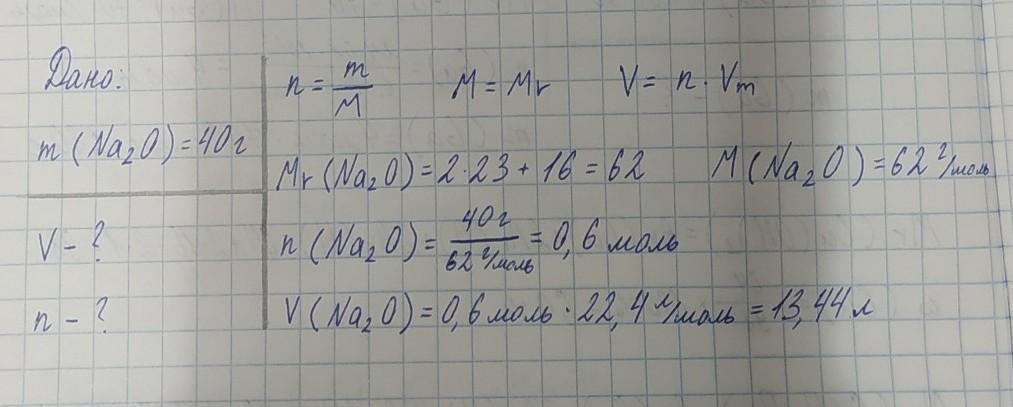 Дано:
m (Na₂O) = 40 г
V – ?
n – ?
n = m/M   M = Mr   V = n · Vm
Mr (Na₂O) = 2·23 + 16 = 62   M (Na₂O) = 62 г/моль
n (Na₂O) = 40 г / 62 г/моль = 0,6 моль
V (Na₂O) = 0,6 моль · 22,4 л/моль = 13,44 л